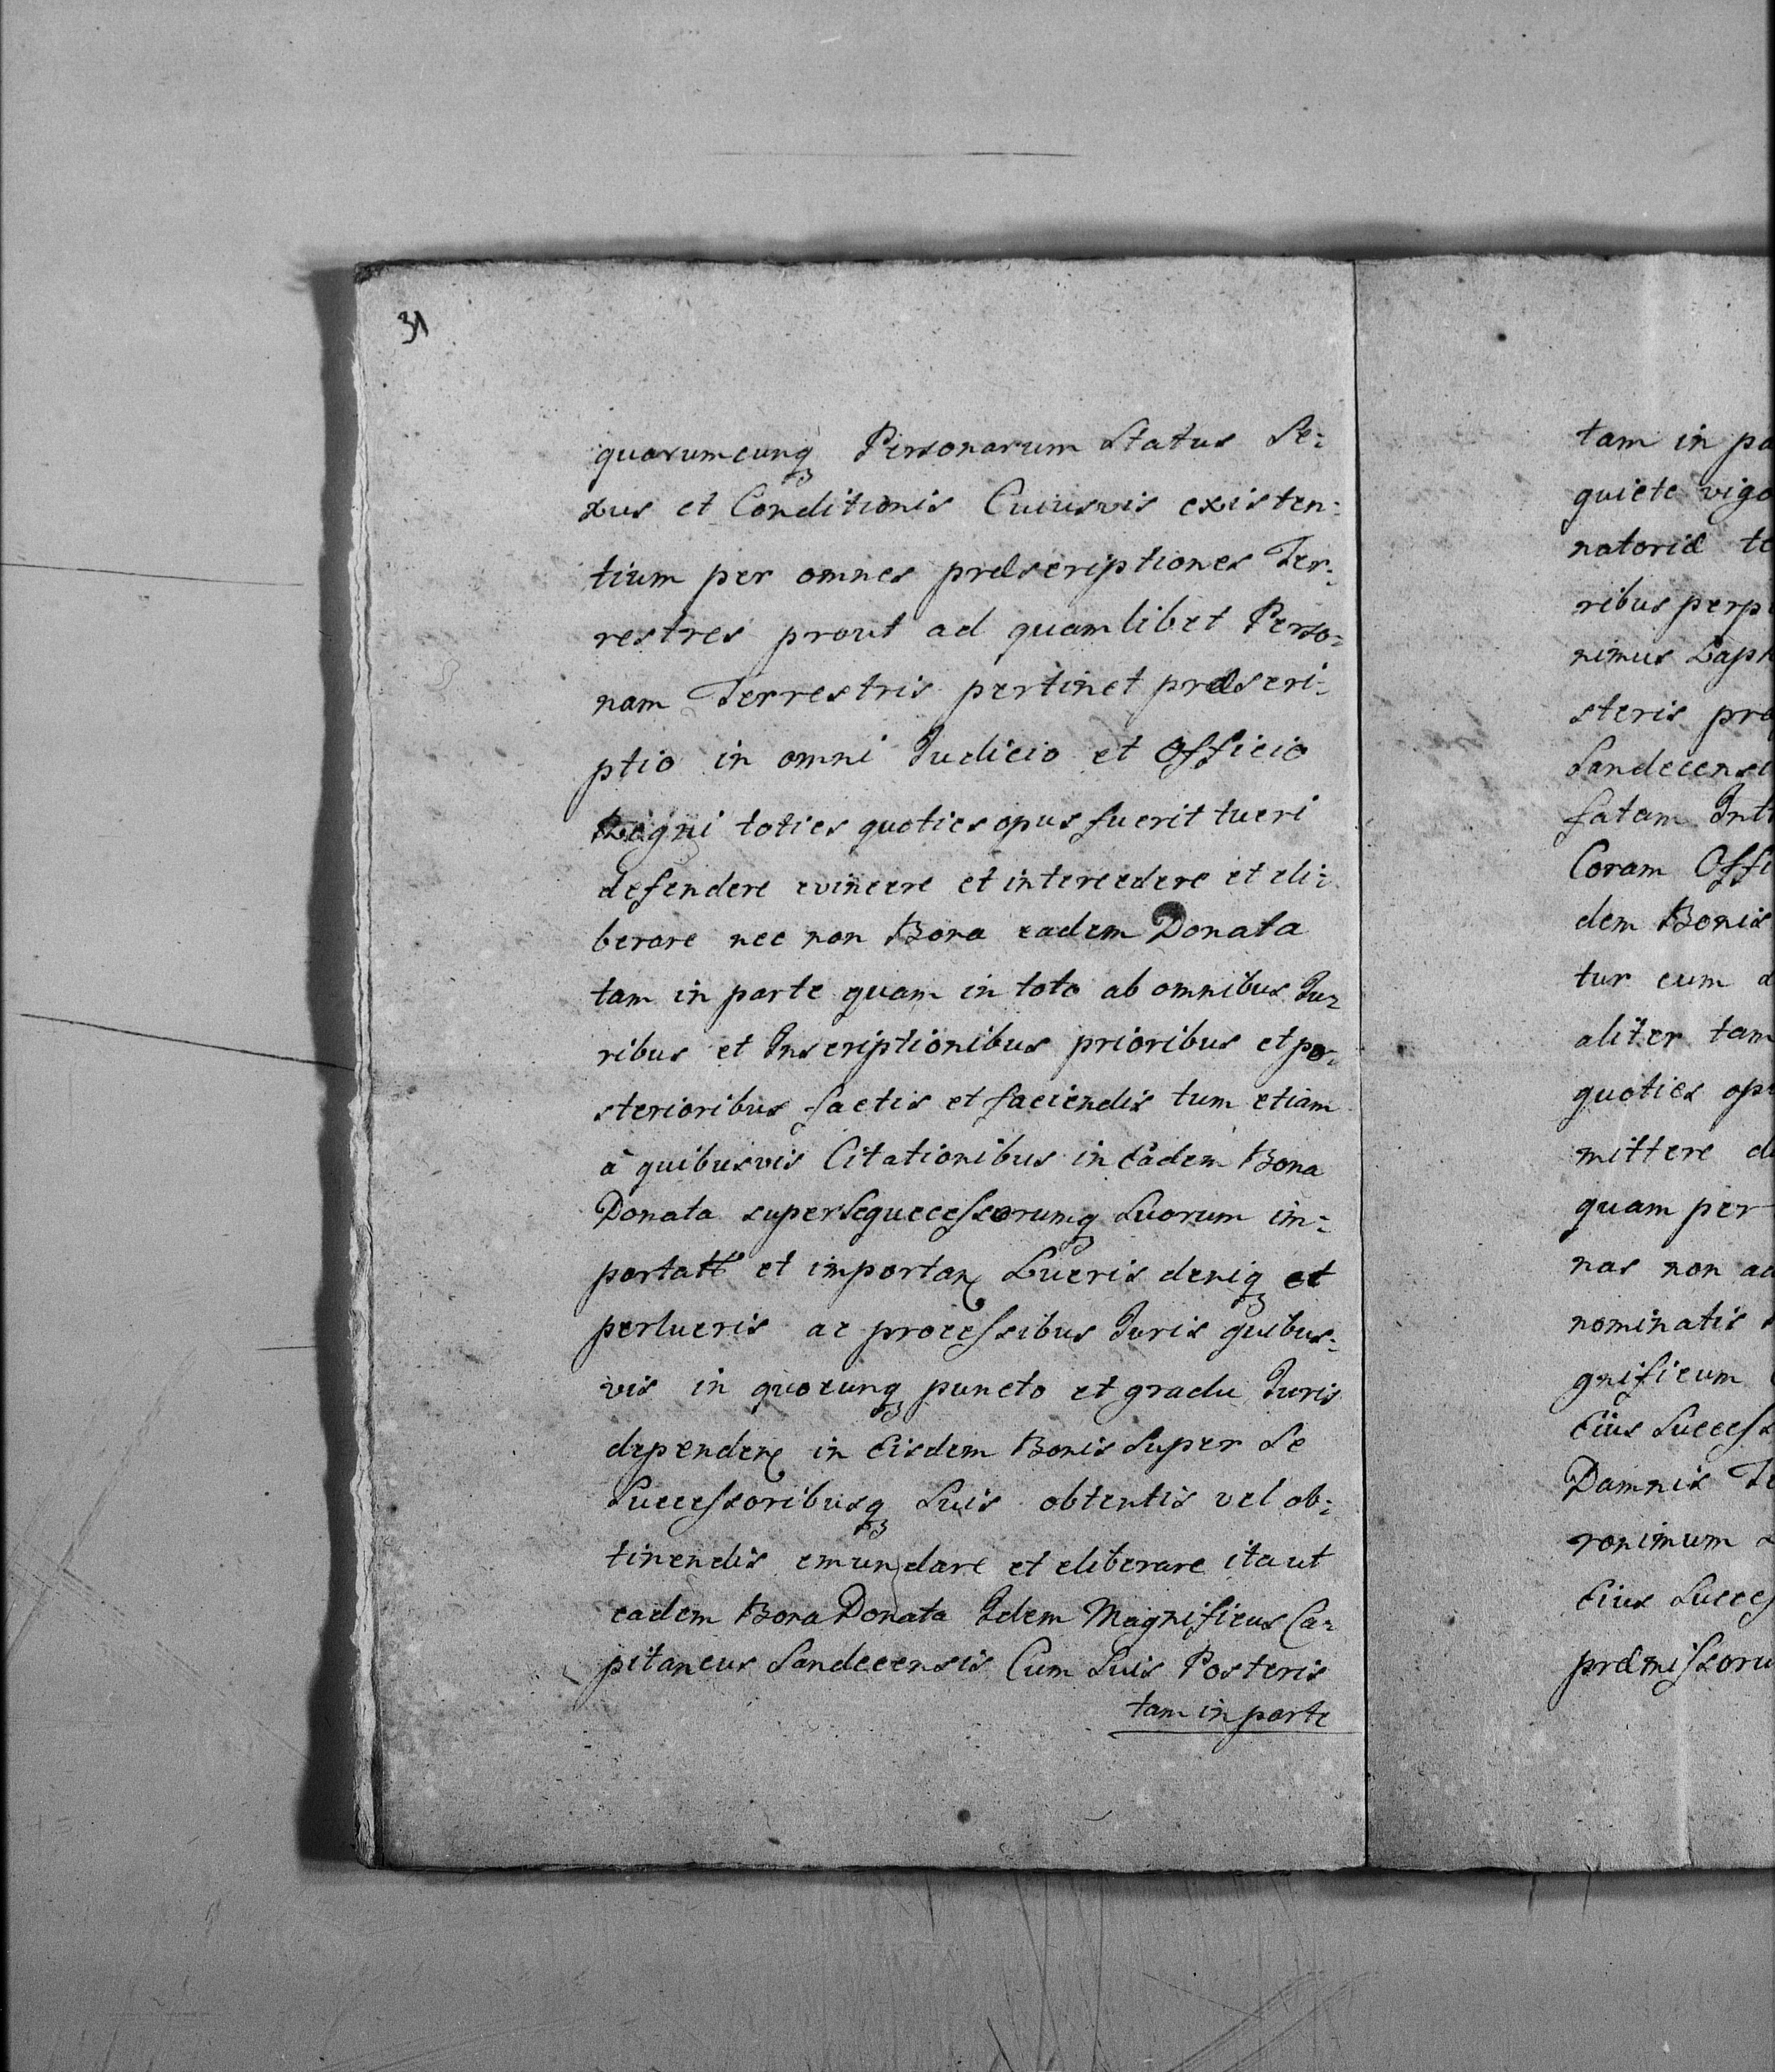 31
quorumcunq₃ Personarum Status Se:
xus et Conditionis Cuiusvis existen:
tium per omnes præscriptiones Ter:
restres prout ad quamlibet Perso:
nam Terrestris pertinet præscri:
ptio in omni Judicio et Officio
Regni toties quoties opus fuerit tueri
defendere evincere et intercedere et eli:
berare nec non Bona eadem Donata
tam in parte quam in toto ab omnibus Ju:
ribus et Inscriptionibus prioribus et po:
sterioribus factis et faciendis tum etiam
à quibusvis Citationibus in Eadem Bona
Donata super Se Successorumq₃ Suorum im:
portatt et importan Lucris deniq₃ et
perlucris ac processibus Juris quibus:
vis in quocunq₃ puncto et gradu Juris
dependen in Eisdem Bonis Super Se
Successoribusq₃ Suis obtentis vel ob:
tinendis emundare et eliberare ita ut
eadem Bona Donata Idem Magnificus Ca:
pitaneus Sandecensis Cum Suis Posteris
tam in parte
tam in pa
quiete vigo
natoriæ te
ribus perp
nimus Lap
steris pre
Sandecensi
fatam Int
Coram Offi
dem Bonis
tur cum a
aliter tam
quoties op
mittere d
quam per
nas non a
nominatis
gnificum
Eius Success
Damnis Te
ronimum
Eius Succes
præmissoru